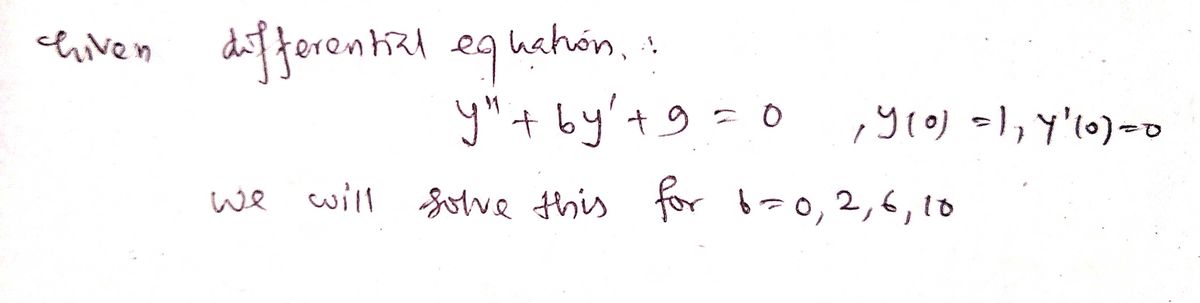 Given differential equation, :
y" + by' + 9 = 0 , y(0) = 1, y'(0) = 0
we will solve this for b = 0, 2, 6, 10